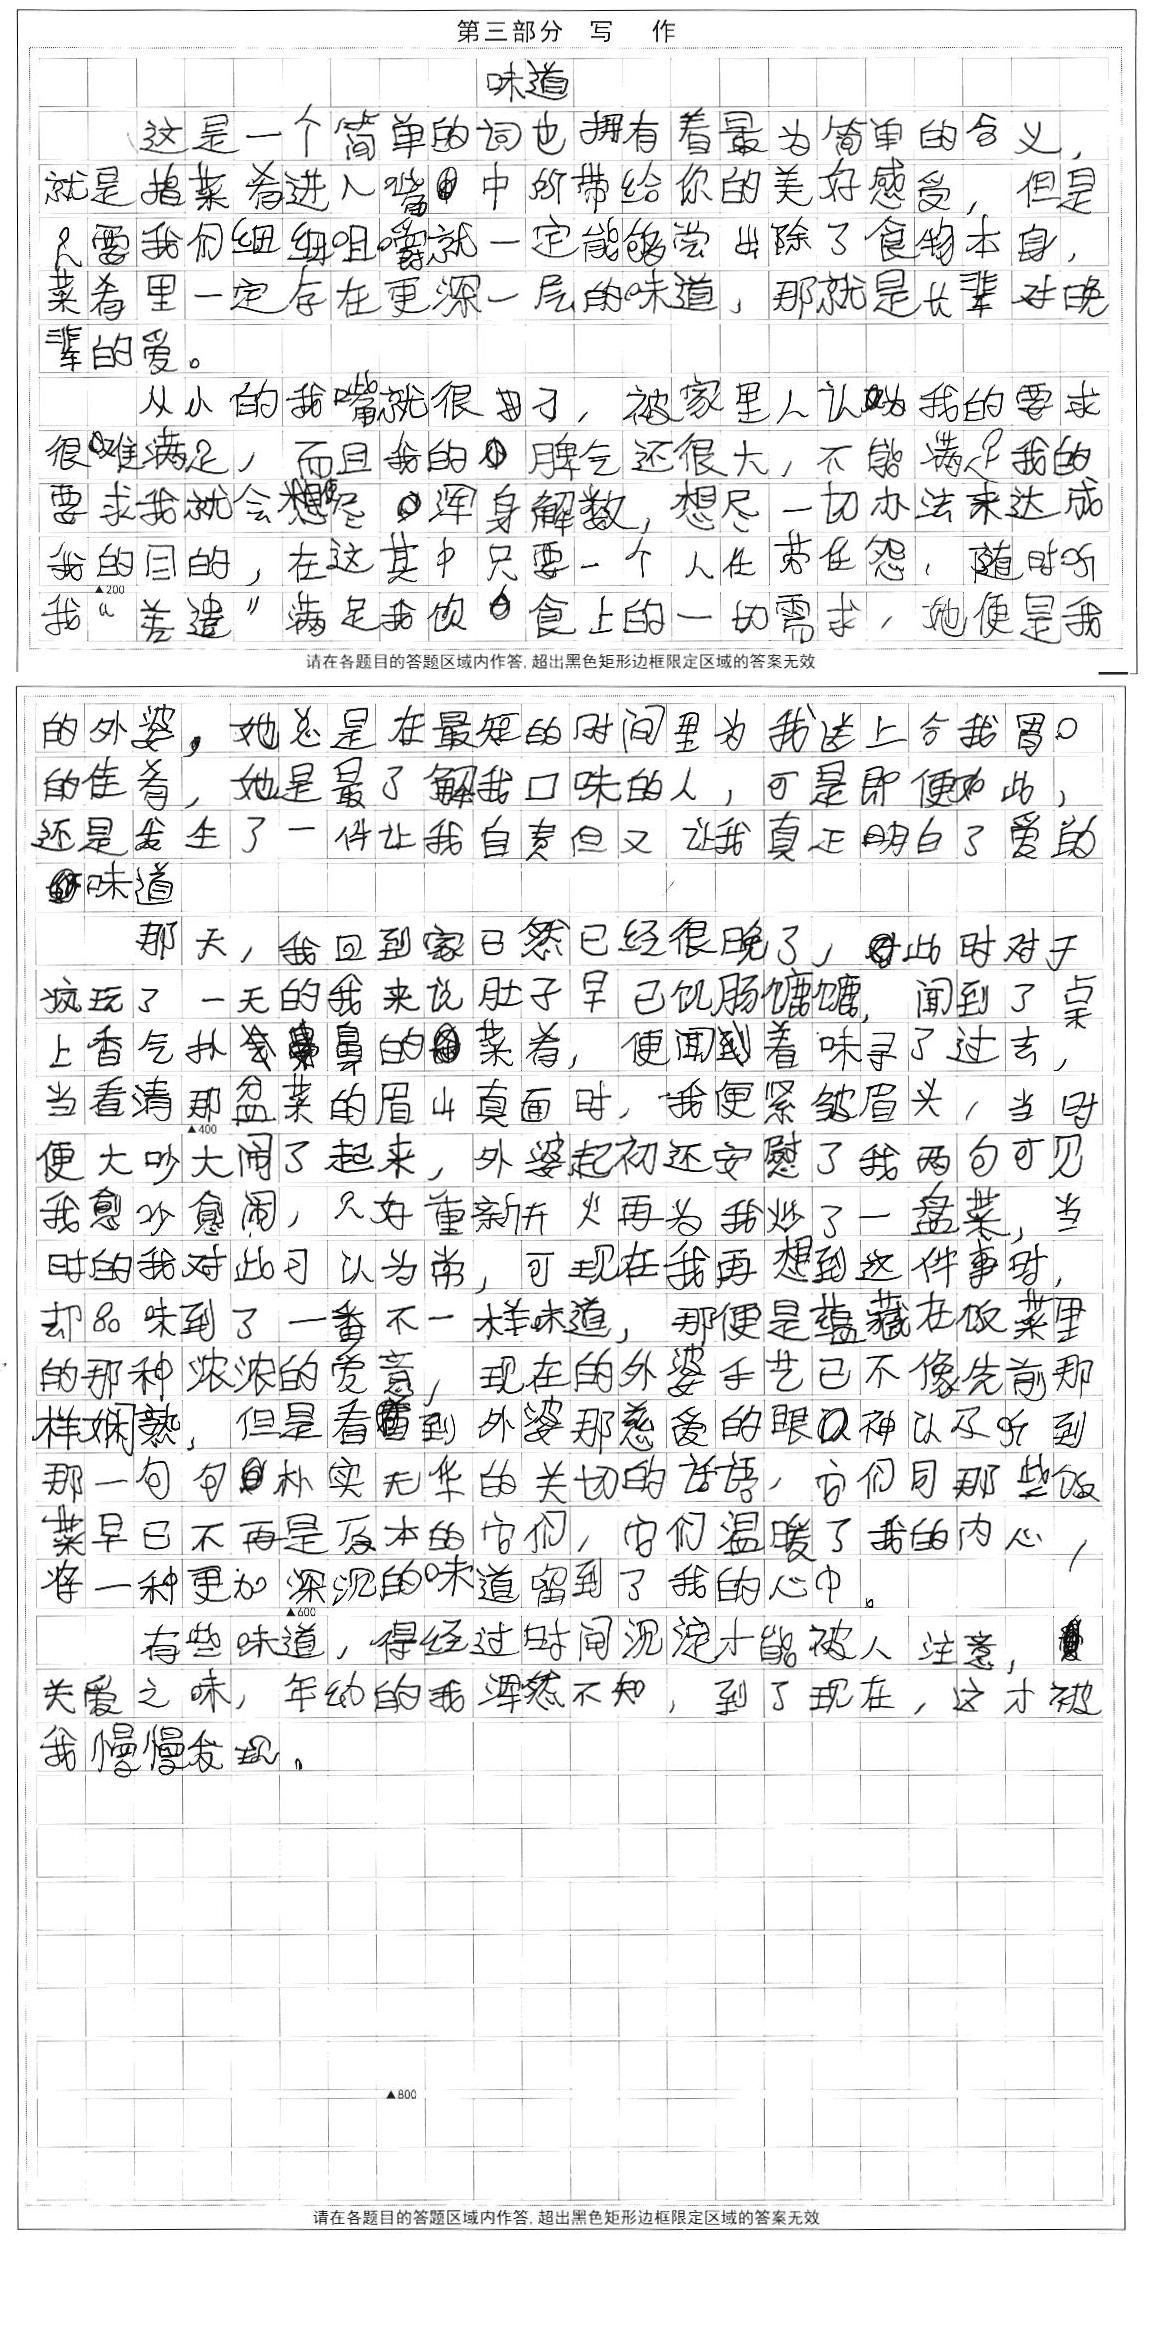 第三部分 写 作
味道
这是一个简单的词也拥有着最为简单的含义，
就是指菜肴进入嘴中所带给你的美好感受，但是
只要我们细细咀嚼就一定能够尝出除了食物本身，
菜肴里一定存在更深一层的味道，那就是长辈对晚
辈的爱。
从小的我嘴就很刁，被家里人认为我的要求
很难满足，而且我的脾气还很大，不能满足我的
要求我就会想尽浑身解数，想尽一切办法来达成
我的目的，在这其中只要一个人任劳任怨，随时听
▲200
我“差遣”满足我饮食上的一切需求，她便是我
请在各题目的答题区域内作答, 超出黑色矩形边框限定区域的答案无效
的外婆，她总是在最短的时间里为我送上合我胃口
的佳肴，她是最了解我口味的人，可是即便如此，
还是发生了一件让我自责但又让我真正明白了爱的
味道
那天，我回到家已然已经很晚了，此时对于
疯玩了一天的我来说肚子早已饥肠辘辘，闻到了桌
上香气扑鼻的菜肴，便闻着味寻了过去，
当看清那盆菜的眉山真面时，我便紧皱眉头，当时
▲400
便大吵大闹了起来，外婆起初还安慰了我两句可见
我愈吵愈闹，只好重新开火再为我炒了一盘菜，当
时的我对此习以为常，可现在我再想到这件事时，
却品味到了一番不一样味道，那便是蕴藏在饭菜里
的那种浓浓的爱意，现在的外婆手艺已不像先前那
样娴熟，但是看到外婆那慈爱的眼神以及听到
那一句句朴实无华的关切的话语，它们同那些饭
菜早已不再是原本的它们，它们温暖了我的内心，
将一种更加深沉的味道留到了我的心中。
▲600
有些味道，得经过时间沉淀才能被人注意，
关爱之味，年幼的我浑然不知，到了现在，这才被
我慢慢发现。
▲800
请在各题目的答题区域内作答, 超出黑色矩形边框限定区域的答案无效